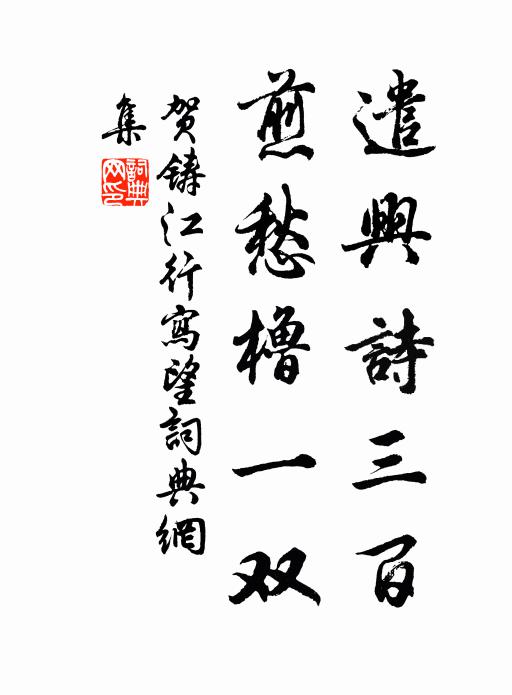 遣興詩三百
煎愁櫓一双
賀鑄江行寫望詞典網
集
詞典
网印